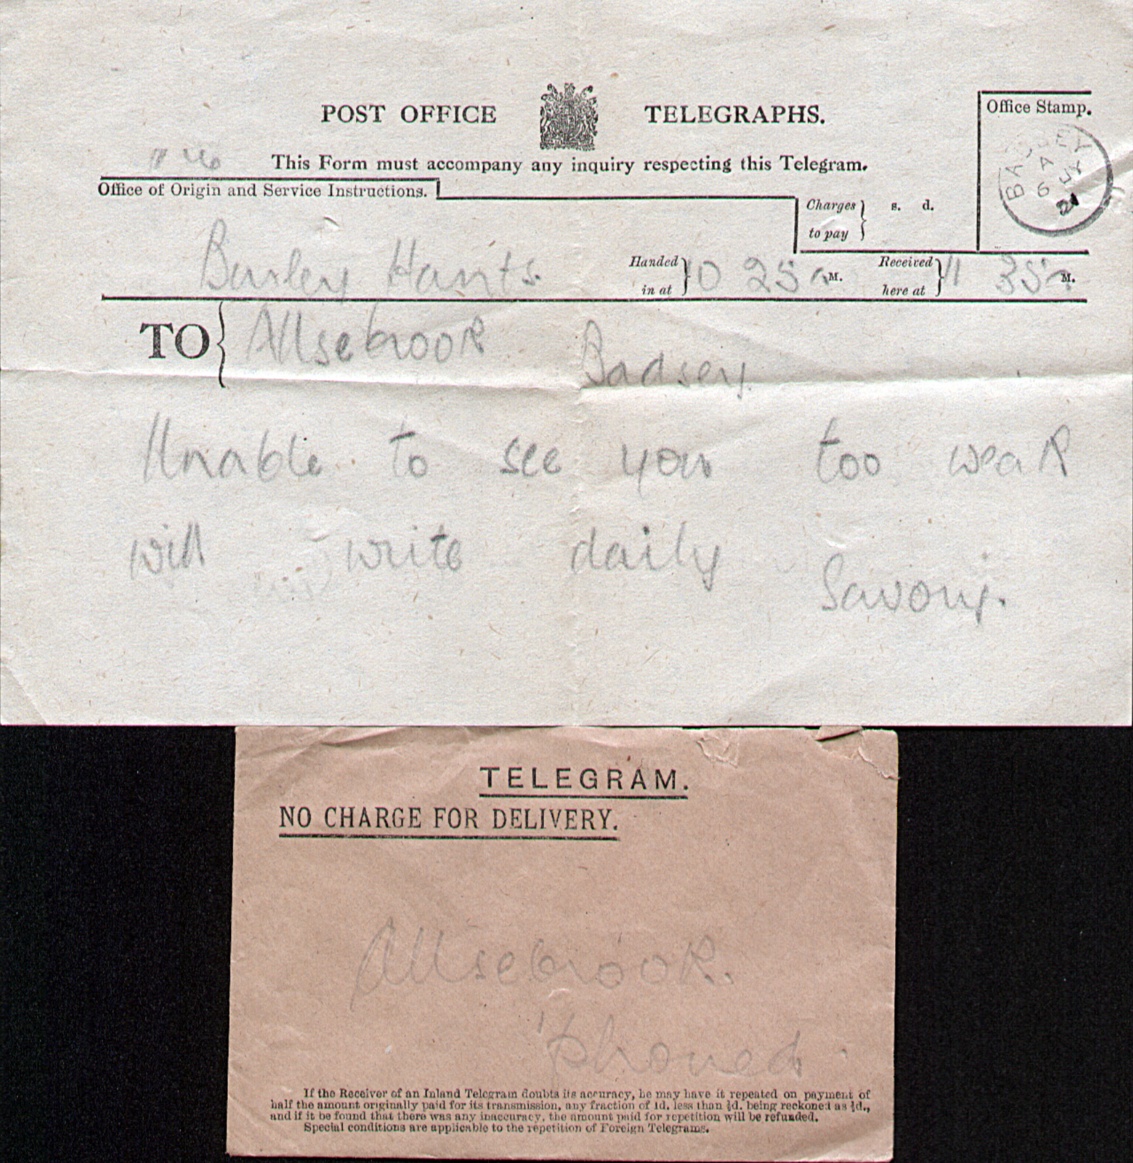 POST OFFICE TELEGRAPHS.
Office Stamp.
This Form must accompany any inquiry respecting this Telegram.
BADSEY
6 MY
21
Office of Origin and Service Instructions.
Charges to pay } s. d.
Burley Hants.
Handed in at } 10 25 a M. Received here at } 11 35 a M.
TO { Allsebrook Badsey
Unable to see you too weak
will write daily
Savory.
TELEGRAM.
NO CHARGE FOR DELIVERY.
Allsebrook.
'phoned.
If the Receiver of an Inland Telegram doubts its accuracy, he may have it repeated on payment of
half the amount originally paid for its transmission, any fraction of 1d. less than ½d. being reckoned as ½d.,
and if it be found that there was any inaccuracy, the amount paid for repetition will be refunded.
Special conditions are applicable to the repetition of Foreign Telegrams.